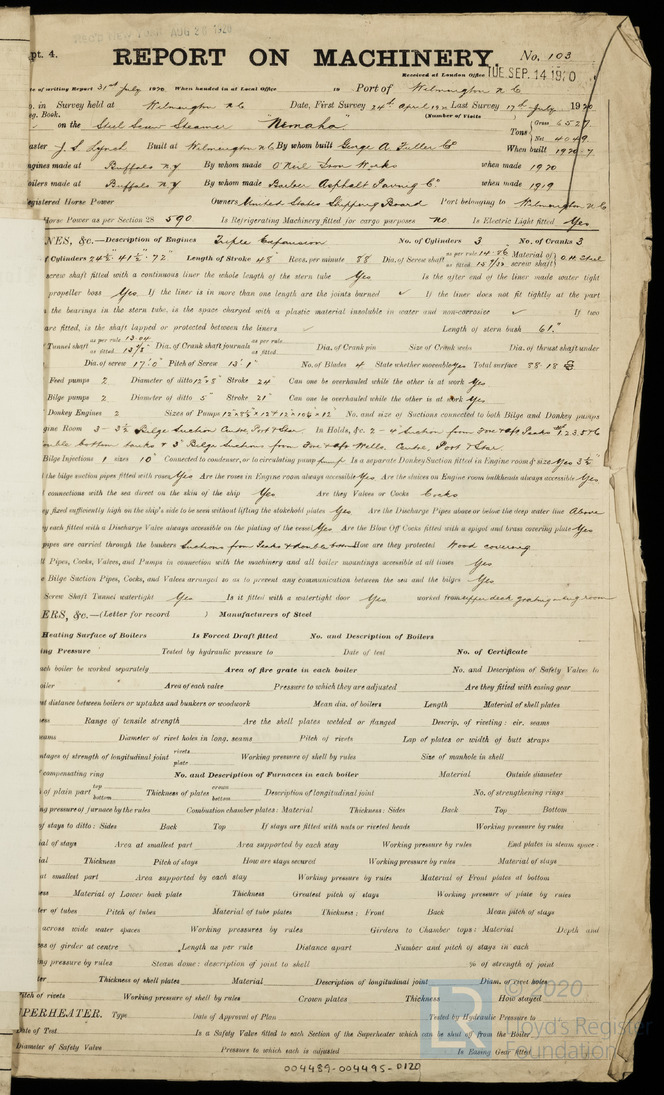 REC'D NEW YORK AUG 20 1920
pt. 4.
REPORT ON MACHINERY.
No. 103
Received at London Office TUE. SEP. 14 1920
te of writing Report 31st July 1920 When handed in at Local Office 19 Port of Wilmington N.C.
o. in Survey held at Wilmington N.C. Date, First Survey 24th April 1920 Last Survey 17th July 1920
eg. Book. (Number of Visits
on the Steel Screw Steamer "Nemaha" Tons { Gross 6527 Net 4049
aster J. L. Lynch Built at Wilmington N.C. By whom built George A. Fuller Co When built 1920-7
ngines made at Buffalo N.Y. By whom made O'Neil Iron Works when made 1920
oilers made at Buffalo N.Y. By whom made Barber Asphalt Paving Co when made 1919
egistered Horse Power Owners United States Shipping Board Port belonging to Wilmington N.C.
Horse Power as per Section 28 590 Is Refrigerating Machinery fitted for cargo purposes No. Is Electric Light fitted Yes
NES, &c.—Description of Engines Triple Expansion No. of Cylinders 3 No. of Cranks 3
f Cylinders 24½" 41½" 72" Length of Stroke 48" Revs. per minute 88 Dia. of Screw shaft as per rule 14.86 as fitted 15 7/32 Material of screw shaft O.H. Steel
screw shaft fitted with a continuous liner the whole length of the stern tube Yes Is the after end of the liner made water tight
propeller boss Yes If the liner is in more than one length are the joints burned ✓ If the liner does not fit tightly at the part
n the bearings in the stern tube, is the space charged with a plastic material insoluble in water and non-corrosive ✓ If two
are fitted, is the shaft lapped or protected between the liners ✓ Length of stern bush 61"
Tunnel shaft as per rule 13.04 as fitted 13⅜" Dia. of Crank shaft journals as per rule as fitted Dia. of Crank pin Size of Crank webs Dia. of thrust shaft under
Dia. of screw 17'0" Pitch of Screw 13'1" No. of Blades 4 State whether moveable Yes Total surface 88.18
Feed pumps 2 Diameter of ditto 12"x8" Stroke 24" Can one be overhauled while the other is at work Yes
Bilge pumps 2 Diameter of ditto 5" Stroke 21" Can one be overhauled while the other is at work Yes
Donkey Engines 2 Sizes of Pumps No. and size of Suctions connected to both Bilge and Donkey pumps
gine Room 3 - 3½" Bilge Suction Centre, Port & Star. In Holds, &c. 2 - 4" Suction from Fore & Aft Peaks 1.2.3.5 & 6
ouble bottom tanks & 3" Bilge Suctions from Fore & Aft Wells. Centre, Port & Star
Bilge Injections 1 sizes 10" Connected to condenser, or to circulating pump pump Is a separate Donkey Suction fitted in Engine room & size Yes 3½"
l the bilge suction pipes fitted with roses Yes Are the roses in Engine room always accessible Yes Are the sluices on Engine room bulkheads always accessible Yes
l connections with the sea direct on the skin of the ship Yes Are they Valves or Cocks Cocks
ey fixed sufficiently high on the ship's side to be seen without lifting the stokehold plates Yes Are the Discharge Pipes above or below the deep water line Above
ey each fitted with a Discharge Valve always accessible on the plating of the vessel Yes Are the Blow Off Cocks fitted with a spigot and brass covering plate Yes
pipes are carried through the bunkers Suctions from Peaks & double bottoms How are they protected Wood covering
ll Pipes, Cocks, Valves, and Pumps in connection with the machinery and all boiler mountings accessible at all times Yes
e Bilge Suction Pipes, Cocks, and Valves arranged so as to prevent any communication between the sea and the bilges Yes
Screw Shaft Tunnel watertight Yes Is it fitted with a watertight door Yes worked from upper deck grating in eng room
ERS, &c.—(Letter for record ) Manufacturers of Steel
Heating Surface of Boilers Is Forced Draft fitted No. and Description of Boilers
ing Pressure Tested by hydraulic pressure to Date of test No. of Certificate
ach boiler be worked separately Area of fire grate in each boiler No. and Description of Safety Valves to
oiler Area of each valve Pressure to which they are adjusted Are they fitted with easing gear
st distance between boilers or uptakes and bunkers or woodwork Mean dia. of boilers Length Material of shell plates
ness Range of tensile strength Are the shell plates welded or flanged Descrip. of riveting: cir. seams
seams Diameter of rivet holes in long. seams Pitch of rivets Lap of plates or width of butt straps
ntages of strength of longitudinal joint rivets plate Working pressure of shell by rules Size of manhole in shell
compensating ring No. and Description of Furnaces in each boiler Material Outside diameter
of plain part top bottom Thickness of plates crown bottom Description of longitudinal joint No. of strengthening rings
ng pressure of furnace by the rules Combustion chamber plates: Material Thickness: Sides Back Top Bottom
of stays to ditto: Sides Back Top If stays are fitted with nuts or riveted heads Working pressure by rules
ial of stays Area at smallest part Area supported by each stay Working pressure by rules End plates in steam space:
ial Thickness Pitch of stays How are stays secured Working pressure by rules Material of stays
at smallest part Area supported by each stay Working pressure by rules Material of Front plates at bottom
ness Material of Lower back plate Thickness Greatest pitch of stays Working pressure of plate by rules
ter of tubes Pitch of tubes Material of tube plates Thickness: Front Back Mean pitch of stays
across wide water spaces Working pressures by rules Girders to Chamber tops: Material Depth and
ss of girder at centre Length as per rule Distance apart Number and pitch of stays in each
ng pressure by rules Steam dome: description of joint to shell % of strength of joint
ter Thickness of shell plates Material Description of longitudinal joint Diam. of rivet holes
itch of rivets Working pressure of shell by rules Crown plates Thickness How stayed
PERHEATER. Type Date of Approval of Plan Tested by Hydraulic Pressure to
Date of Test Is a Safety Valve fitted to each Section of the Superheater which can be shut off from the Boiler
Diameter of Safety Valve Pressure to which each is adjusted Is Easing Gear fitted
004489-004495-0120
LR © 2020 Lloyd's Register Foundation